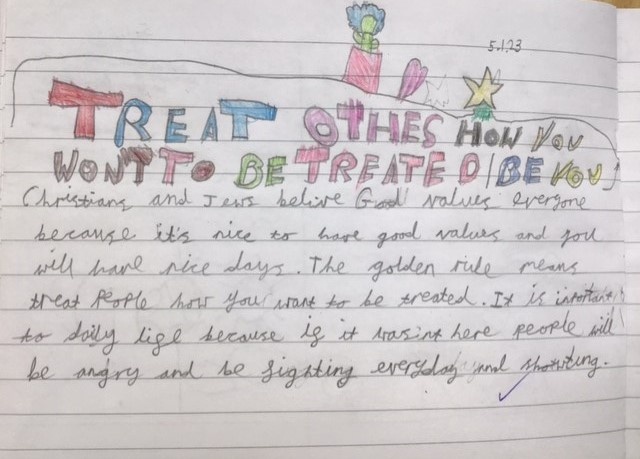 5.1.23
TREAT OTHES HOW YOU
WON'T TO BE TREATED/BE YOU
Christians and Jews belive God values everyone
because it's nice to have good values and you
will have nice days. The golden rule means
treat people how you want to be treated. It is important
to daily lige because ig it wasint here people will
be angry and be fighting everyday and shouting.